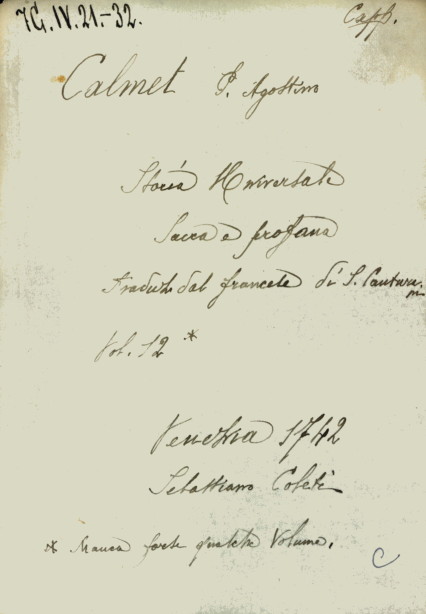 7G.IV.21.-32.
Capp.
Calmet P. Agostino
Storia Universale
Sacra e profana
Traduz. dal francese di S. Canturani
Vol. 12 *
Venezia 1742
Sebastiano Coleti
* Manca forse qualche Volume.
C